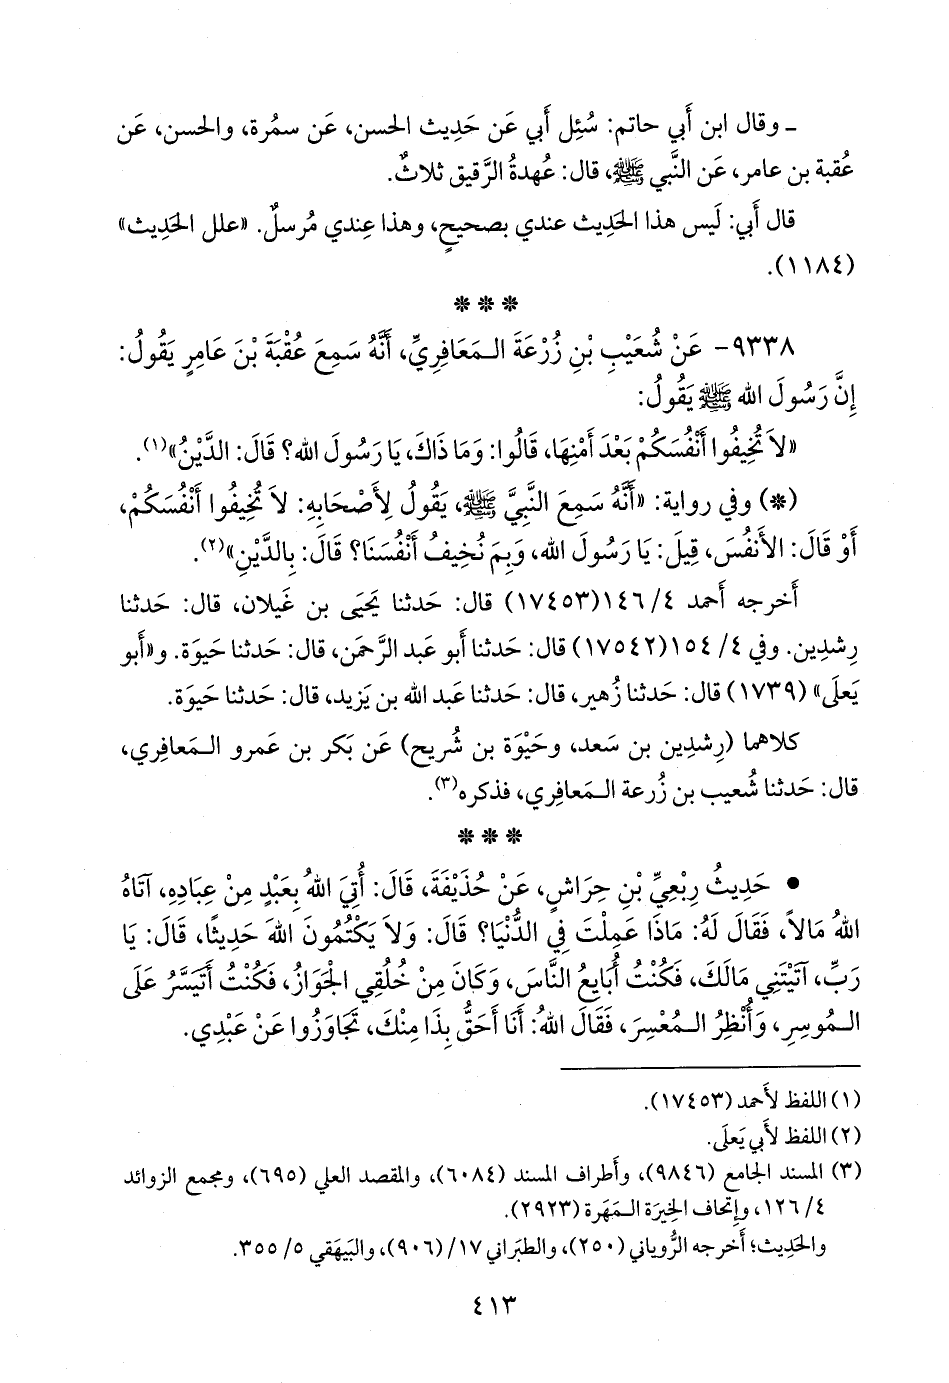 ـ وقال ابن أَبي حاتم: سُئِل أَبي عَن حَدِيث الحسن، عَن سمُرة، والحسن، عَن
عُقبة بن عامر، عَن النَّبي ﷺ، قال: عُهدةُ الرَّقيق ثلاثٌ.
قال أَبي: لَيس هذا الحَدِيث عندي بصحيحٍ، وهذا عِندي مُرسلٌ. «علل الحَدِيث»
(١١٨٤).
* * *
٩٣٣٨- عَنْ شُعَيْبِ بْنِ زُرْعَةَ الـمَعَافِرِيِّ، أَنَّهُ سَمِعَ عُقْبَةَ بْنَ عَامِرٍ يَقُولُ:
إِنَّ رَسُولَ الله ﷺ يَقُولُ:
«لاَ تُخِيفُوا أَنْفُسَكُمْ بَعْدَ أَمْنِهَا، قَالُوا: وَمَا ذَاكَ، يَا رَسُولَ الله؟ قَالَ: الدَّيْنُ»(١).
(*) وفي رواية: «أَنَّهُ سَمِعَ النَّبِيَّ ﷺ، يَقُولُ لِأَصْحَابِهِ: لاَ تُخِيفُوا أَنْفُسَكُمْ،
أَوْ قَالَ: الأَنفُسَ، قِيلَ: يَا رَسُولَ الله، وَبِمَ نُخِيفُ أَنْفُسَنَا؟ قَالَ: بِالدَّيْنِ»(٢).
أَخرجه أَحمد ٤/ ١٤٦(١٧٤٥٣) قال: حَدثنا يَحيَى بن غَيلان، قال: حَدثنا
رِشدِين. وفي ٤/ ١٥٤(١٧٥٤٢) قال: حَدثنا أَبو عَبد الرَّحمَن، قال: حَدثنا حَيوَة. و«أَبو
يَعلَى» (١٧٣٩) قال: حَدثنا زُهير، قال: حَدثنا عَبد الله بن يَزيد، قال: حَدثنا حَيوَة.
كلاهما (رِشدِين بن سَعد، وحَيْوَة بن شُريح) عَن بَكر بن عَمرو الـمَعافِري،
قال: حَدثنا شُعيب بن زُرعة الـمَعافِري، فذكره(٣).
* * *
• حَدِيثُ رِبْعِيِّ بْنِ حِرَاشٍ، عَنْ حُذَيْفَةَ، قَالَ: أُتِيَ اللهُ بِعَبْدٍ مِنْ عِبَادِهِ، آتَاهُ
اللهُ مَالاً، فَقَالَ لَهُ: مَاذَا عَمِلْتَ فِي الدُّنْيَا؟ قَالَ: وَلاَ يَكْتُمُونَ اللهَ حَدِيثًا، قَالَ: يَا
رَبِّ، آتَيْتَنِي مَالَكَ، فَكُنْتُ أُبَايِعُ النَّاسَ، وَكَانَ مِنْ خُلُقِي الجَوَازُ، فَكُنْتُ أَتَيَسَّرُ عَلَى
الـمُوسِرِ، وَأُنْظِرُ الـمُعْسِرَ، فَقَالَ اللهُ: أَنَا أَحَقُّ بِذَا مِنْكَ، تَجَاوَزُوا عَنْ عَبْدِي.
(١) اللفظ لأَحمد (١٧٤٥٣).
(٢) اللفظ لأَبي يَعلَى.
(٣) المسند الجامع (٩٨٤٦)، وأَطراف المسند (٦٠٨٤)، والمقصد العلي (٦٩٥)، ومجمع الزوائد
٤/ ١٢٦، وإتحاف الخِيرَة الـمَهَرة (٢٩٢٣).
والحَدِيث؛ أَخرجه الرُّوياني (٢٥٠)، والطبَراني ١٧/ (٩٠٦)، والبَيهَقي ٥/ ٣٥٥.
٤١٣